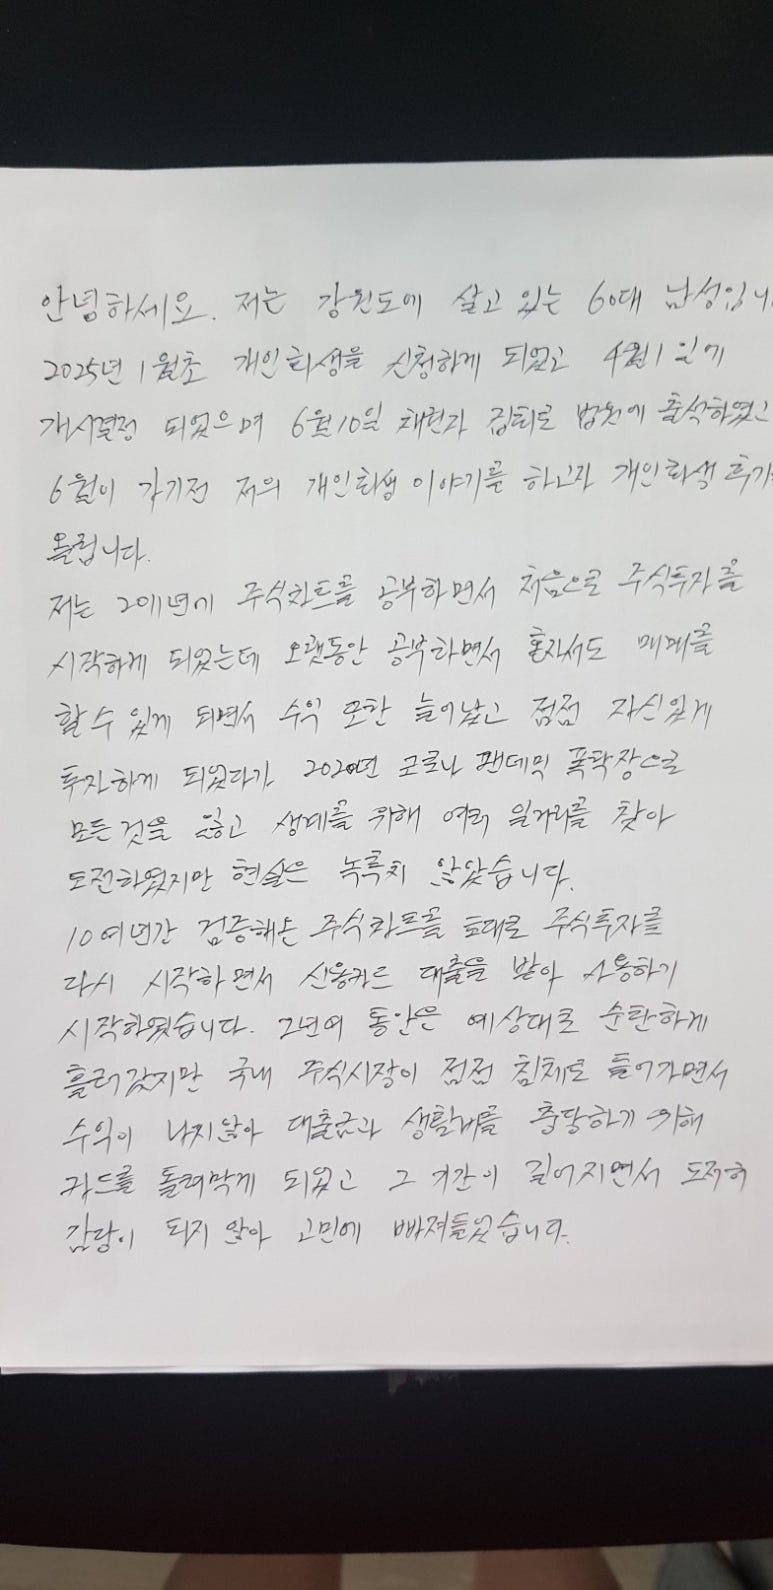 안녕하세요. 저는 강원도에 살고 있는 60대 남성입니
2025년 1월초 개인회생을 신청하게 되었고 4월 1일에
개시결정 되었으며 6월10일 채권자 집회로 법원에 출석하였고
6월이 가기전 저의 개인회생 이야기를 하고자 개인회생 후기
올립니다.
저는 2011년에 주식차트를 공부하면서 처음으로 주식투자를
시작하게 되었는데 오랫동안 공부하면서 혼자서도 매매를
할 수 있게 되면서 수익 또한 늘어났고 점점 자신있게
투자하게 되었다가 2020년 코로나 팬데믹 폭락장으로
모든것을 잃고 생계를 위해 여러 일거리를 찾아
도전하였지만 현실은 녹록치 않았습니다.
10여년간 검증해온 주식차트를 토대로 주식투자를
다시 시작하면서 신용카드 대출을 받아 사용하기
시작하였습니다. 2년여 동안은 예상대로 순탄하게
흘러갔지만 국내 주식시장이 점점 침체로 들어가면서
수익이 나지않아 대출금과 생활비를 충당하기 위해
카드를 돌려막게 되었고 그 기간이 길어지면서 도저히
감당이 되지 않아 고민에 빠져들었습니다.